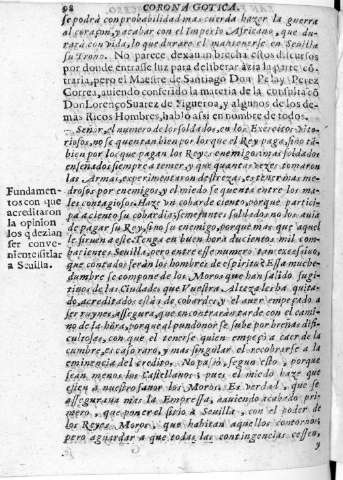 98 CORONA GOTICA.
se podrà con probabilidad mas cuerda hazer la guerra
al coraçon, y acabar con el Imperio Africano, que du-
rarà con vida, lo que durare el mantenerse en Sevilla
su Trono. No parece dexavan brecha estos discursos
por donde entrasse luz para deliberar àzia la parte cõ-
traria, pero el Maestre de Santiago Don Pelay Perez
Correa, auiendo conferido la materia de la consulta cõ
Don Lorenço Suarez de Figueroa, y algunos de los de-
mas Ricos Hombres, hablò assi en nombre de todos.
Señor, el numero de los soldados, en los Exercitos Vito-
riosos, no se quentan bien por los que el Rey paga, sino tã-
bien por los que pagan los Reyes enemigos: mas soldados
enseñados siempre a temer, y que quantas vezes tomaron
las Armas, experimentaron destreza, es tener mas me-
drosos por enemigos, y el miedo se quenta entre los ma-
les contagiosos. Haze vn cobarde ciento, porque partici-
pa a ciento su cobardia; semejantes soldados, no los auia
de pagar su Rey, sino su enemigo, porque mas que à aquel
le siruen a este. Tenga en buen hora ducientos mil com-
batientes Sevilla, pero entre esse numero tan excessiuo,
que contados seràn los hombres de espiritu? Essa muche-
dumbre se compone de los Moros que han salido fugi-
tiuos de las Ciudades que Vuestra Alteza les ha quita-
do, acreditados estàn de cobardes, y el auer empeçado a
ser ruynes, assegura, que encontraràn tarde con el cami-
no de la hõra, porque al pundonor se sube por breñas difi-
cultosas, con que el tenerse quien empeçò a caer de la
cumbre, es caso raro, y mas singular el recobrarse à la
eminencia del credito. No passò, segun esto, porque
sean menos los Castellanos, pues el miedo haze que
estèn a nuestro fauor los Moros. Es verdad, que se
assegurava mas la Empressa, auiendo acabado pri-
mero, que poner el sitio à Sevilla, con el poder de
los Reyes Moros, que habitan aquellos contornos,
pero aguardar a que todas las contingencias cessen,
y
Fundamen-
tos con que
acreditaron
la opinion
los q̃ dezian
ser conve-
niente sitiar
a Sevilla.